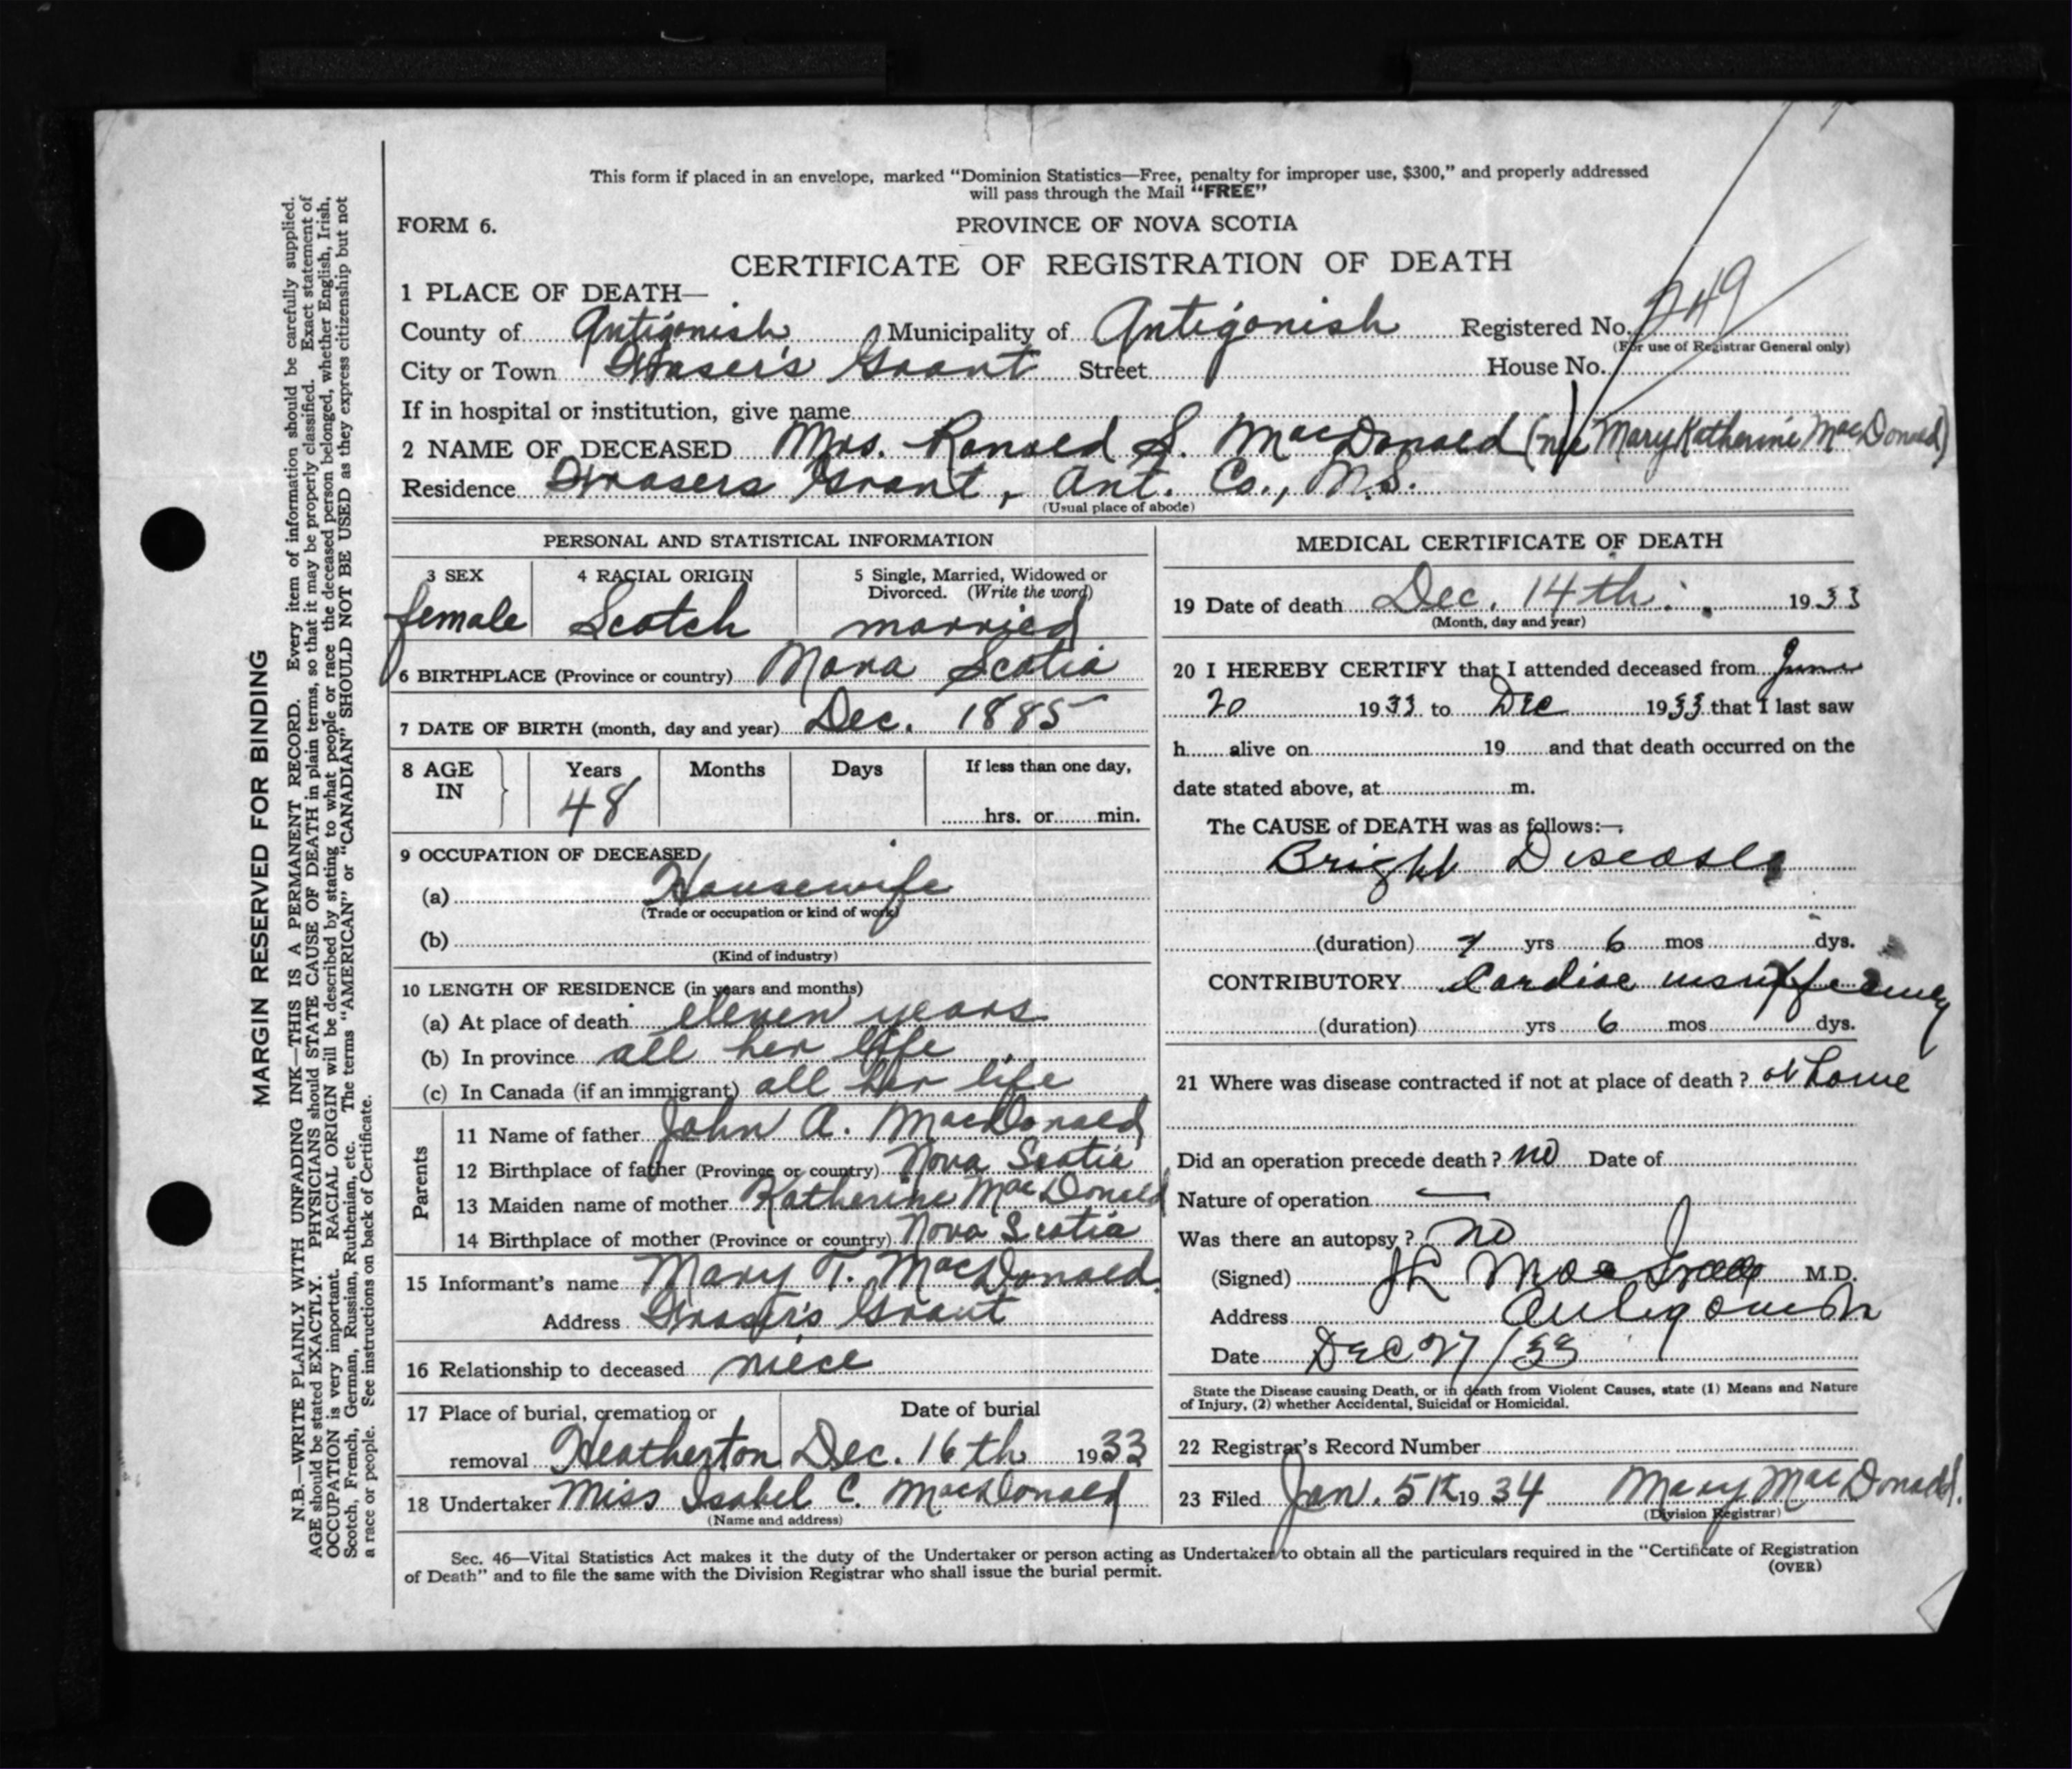 This form if placed in an envelope, marked “Dominion Statistics—Free, penalty for improper use, $300,” and properly addressed
will pass through the Mail “FREE”
FORM 6.
PROVINCE OF NOVA SCOTIA
CERTIFICATE OF REGISTRATION OF DEATH
1 PLACE OF DEATH—
County of Antigonish Municipality of Antigonish Registered No. 249
(For use of Registrar General only)
City or Town Fraser's Grant Street House No.
If in hospital or institution, give name
2 NAME OF DECEASED Mrs. Ronald S. MacDonald (nee Mary Katherine MacDonald)
Residence Frasers Grant, Ant. Co., N.S.
(Usual place of abode)
PERSONAL AND STATISTICAL INFORMATION
3 SEX 4 RACIAL ORIGIN 5 Single, Married, Widowed or
Divorced. (Write the word)
female Scotch married
6 BIRTHPLACE (Province or country) Nova Scotia
7 DATE OF BIRTH (month, day and year) Dec. 1885
8 AGE Years Months Days If less than one day,
IN 48 hrs. or min.
9 OCCUPATION OF DECEASED
(a) Housewife
(Trade or occupation or kind of work)
(b)
(Kind of industry)
10 LENGTH OF RESIDENCE (in years and months)
(a) At place of death eleven years
(b) In province all her life
(c) In Canada (if an immigrant) all her life
Parents
11 Name of father John A. MacDonald
12 Birthplace of father (Province or country) Nova Scotia
13 Maiden name of mother Katherine MacDonald
14 Birthplace of mother (Province or country) Nova Scotia
15 Informant's name Mary T. MacDonald
Address Fraser's Grant
16 Relationship to deceased niece
17 Place of burial, cremation or Date of burial
removal Heatherton Dec. 16th 1933
18 Undertaker Miss Isabel C. MacDonald
(Name and address)
MEDICAL CERTIFICATE OF DEATH
19 Date of death Dec. 14th 1933
(Month, day and year)
20 I HEREBY CERTIFY that I attended deceased from June
20 1933 to Dec 1933 that I last saw
h alive on 19 and that death occurred on the
date stated above, at m.
The CAUSE of DEATH was as follows:—
Bright Disease
(duration) yrs 6 mos dys.
CONTRIBUTORY Cardiac insufficiency
(duration) yrs 6 mos dys.
21 Where was disease contracted if not at place of death? at home
Did an operation precede death? no Date of
Nature of operation —
Was there an autopsy? no
(Signed) M.D.
Address Antigonish
Date Dec 27/33
State the Disease causing Death, or in death from Violent Causes, state (1) Means and Nature
of Injury, (2) whether Accidental, Suicidal or Homicidal.
22 Registrar's Record Number
23 Filed Jan. 5th 1934 Mary MacDonald.
(Division Registrar)
Sec. 46—Vital Statistics Act makes it the duty of the Undertaker or person acting as Undertaker to obtain all the particulars required in the “Certificate of Registration
of Death” and to file the same with the Division Registrar who shall issue the burial permit.
(OVER)
MARGIN RESERVED FOR BINDING
N.B.—WRITE PLAINLY WITH UNFADING INK—THIS IS A PERMANENT RECORD. Every item of information should be carefully supplied.
AGE should be stated EXACTLY. PHYSICIANS should STATE CAUSE OF DEATH in plain terms, so that it may be properly classified. Exact statement of
OCCUPATION is very important. RACIAL ORIGIN will be described by stating to what people or race the deceased person belonged, whether English, Irish,
Scotch, French, German, Russian, Ruthenian, etc. The terms “AMERICAN” or “CANADIAN” SHOULD NOT BE USED as they express citizenship but not
a race or people. See instructions on back of Certificate.